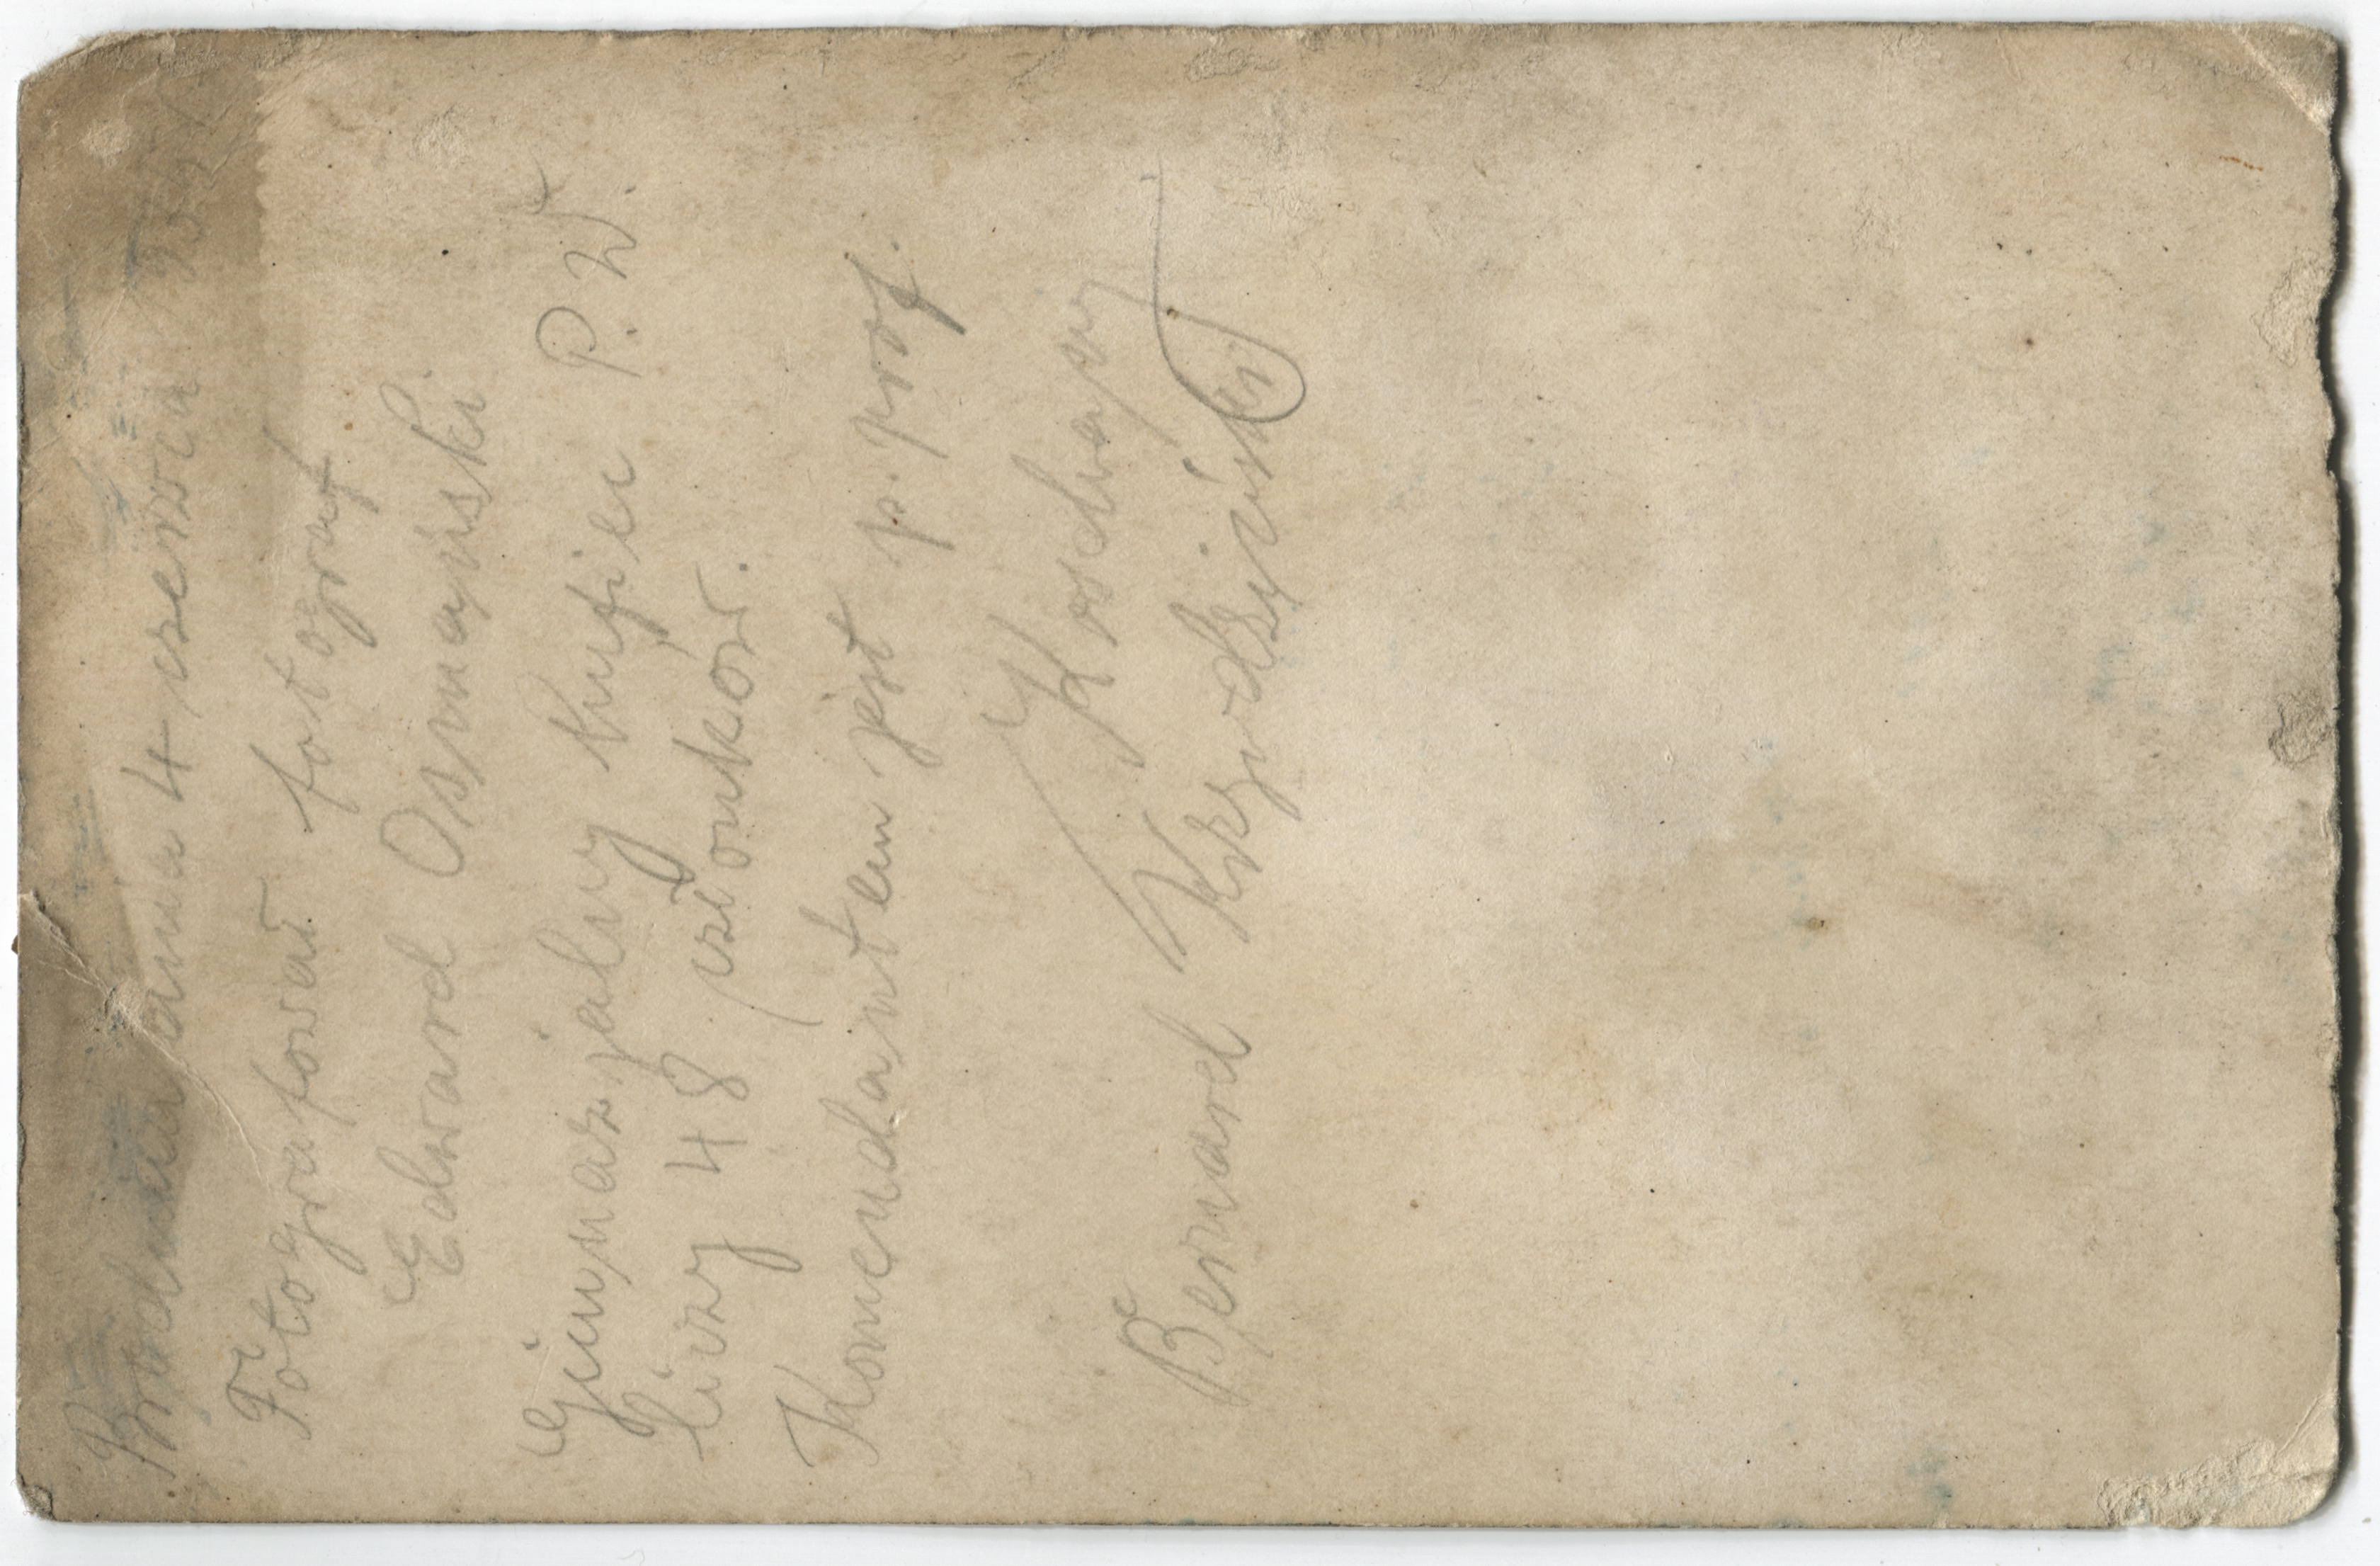 Brodnica dnia 4 czerwca
Fotografował fotograf
Edward Osmański
Gimnazjalny hufiec P. W.
liczy 48 członków.
Komendantem jest p. prof.
Kochany
Bernard Krzydziński